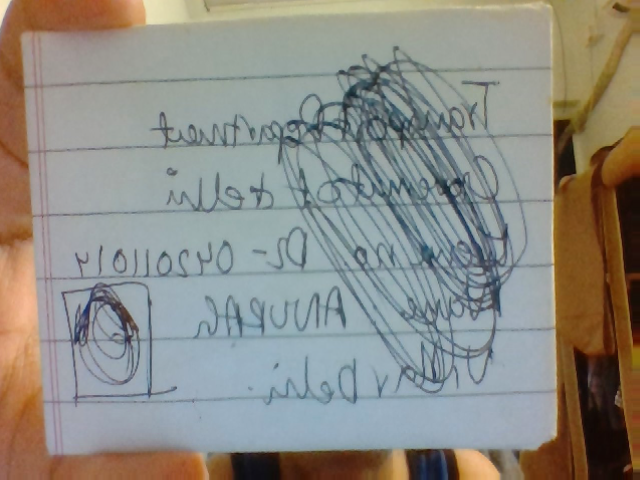 Transport Department
Government of delhi
Exam no DL-042011014
Name ANURAG
Delhi